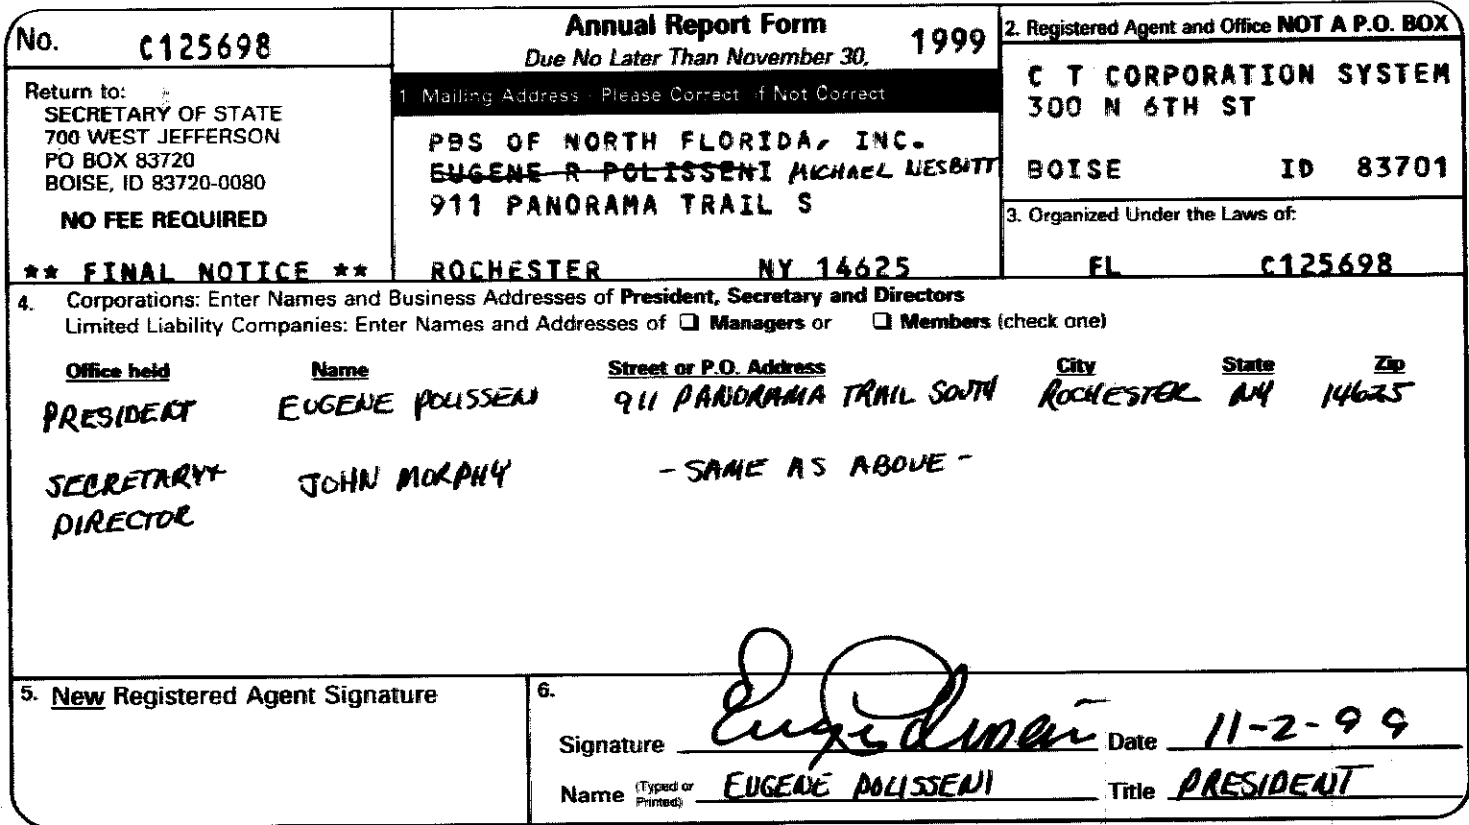 No. C125698
Return to:
SECRETARY OF STATE
700 WEST JEFFERSON
PO BOX 83720
BOISE, ID 83720-0080
NO FEE REQUIRED
** FINAL NOTICE **
Annual Report Form 1999
Due No Later Than November 30,
1. Mailing Address - Please Correct if Not Correct
PBS OF NORTH FLORIDA, INC.
EUGENE R POLISSENI MICHAEL NESBITT
911 PANORAMA TRAIL S
ROCHESTER NY 14625
2. Registered Agent and Office NOT A P.O. BOX
C T CORPORATION SYSTEM
300 N 6TH ST
BOISE ID 83701
3. Organized Under the Laws of:
FL C125698
4. Corporations: Enter Names and Business Addresses of President, Secretary and Directors
Limited Liability Companies: Enter Names and Addresses of ☐ Managers or ☐ Members (check one)
Office held Name Street or P.O. Address City State Zip
PRESIDENT EUGENE POLISSENI 911 PANORAMA TRAIL SOUTH ROCHESTER NY 14625
SECRETARY+ JOHN MORPHY - SAME AS ABOVE -
DIRECTOR
5. New Registered Agent Signature
6.
Signature Date 11-2-99
Name (Typed or Printed) EUGENE POLISSENI Title PRESIDENT